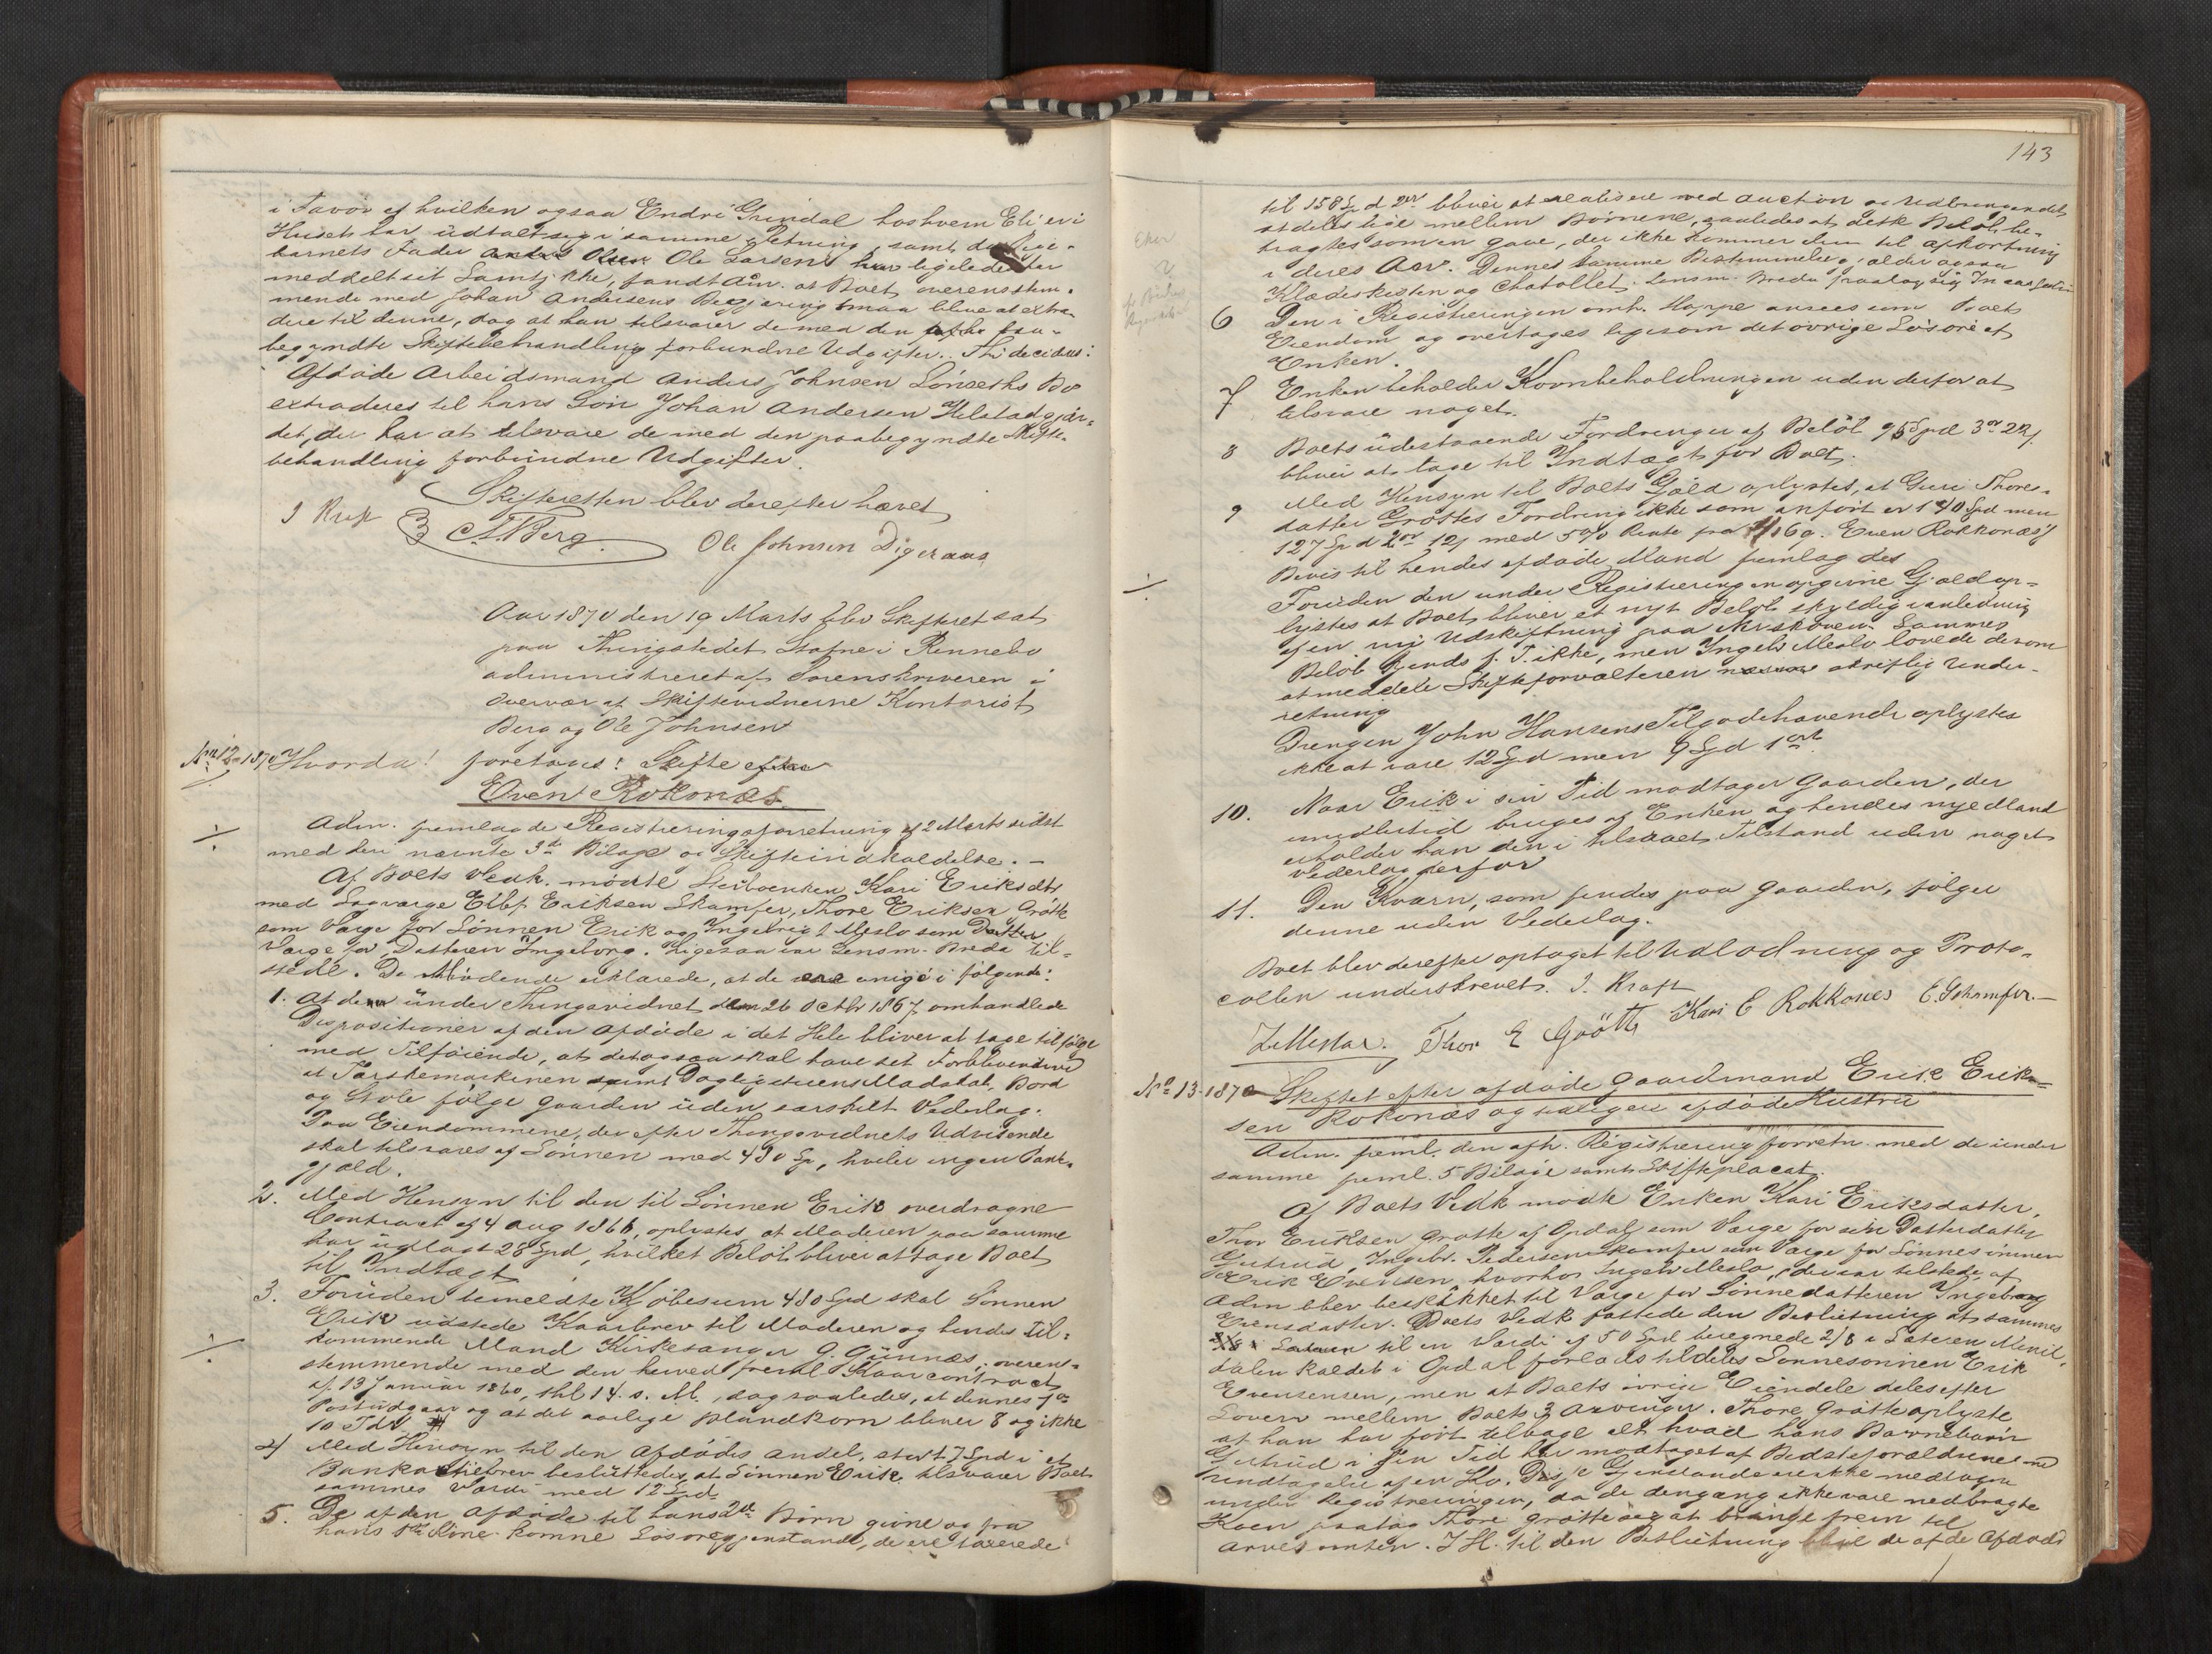 i Favör af hvilken ogsaa Endri Grindal hos hvem Eli er i
Huset har udtalt sig i samme Retning, samt da
barnets Fader Ole Larsen ligeledes har
meddelt sit Samtykke, fandt Adm. at Boet overensstem-
mende med Johan Andersens Begjæring maa blive at extra-
dere til denne, dog at han tilsvarer de med den paa-
begyndte Skiftebehandling forbundne Udgifter. Thi decideres:
Afdöde Arbeidsmand Anders Johnsen Lönseths Bo
extraderes til hans Sön Johan Andersen Helstadgjær-
det, der har at tilsvare de med den paabegyndte Skifte-
behandling forbundne Udgifter.
Skifteretten blev derefter hævet
J Kraft
A. Berg
Ole Johnsen Digeraas
Aar 1870 den 19 Marts blev Skifteret sat
paa Thingstedet Stafne i Rennebo
administreret af Sorenskriveren i
Overvær af Skiftevidnerne Kontorist
Berg og Ole Johnsen
No 12-1870 Hvorda! foretoges: Skifte efter
Even Rokonæs.
Adm. fremlagde Registreringsforretning af 2 Marts sidst
med den nævnte 3de Bilage og Skifteindkaldelse. -
Af Boets Vedk. mödte Stervboenken Kari Eriksdtr
med Lagværge Ellef Eriksen Skamfer, Thore Eriksen Grötte
som Værge for Sönnen Erik og Ingebrigt Meslo som
Værge for Datteren Ingeborg. Ligesaa var Lensm. Bredo til-
stede. De Mödende erklærede, at de ere enige i fölgende:
1. At de under Thingsvidnet den 26 Octbr 1867 omhandlede
Dispositioner af den Afdöde i det Hele bliver at tage tilfölge
med Tilföiende, at det ogsaa skal have sit Forblivende
at Tærskemaskinen samt Dagligstuens Madskab, Bord
og Stole fölge Gaarden uden særskilt Vederlag.
Paa Eiendommene, der efter Thingsvidnets Udvisende
skal tilsvares af Sönnen med 480 Sp, hviler ingen Pante-
gjæld.
2. Med Hensyn til den til Sönnen Erik overdragne
Contract af 4 Aug 1866, oplystes at Moderen paa samme
har udlagt 28 Spd, hvilket Belöb bliver at tage Boet
til Indtægt
3. Foruden bemeldte Kjöbesum 480 Spd skal Sönnen
Erik udstede Kaarbrev til Moderen og hendes til-
kommende Mand Kirkesanger G. Gunnæs, overen-
stemmende med den herved freml Kaarcontract
af 13 Januar 1860, thl 14. s. M., dog saaledes, at dennes 7de
Post udgaar og at det aarlige Blandkorn bliver 8 og ikke
10 Tdr.
4 Med Hensyn til den Afdödes Andel, stort 7 Spd i et
Bankactiebrev besluttedes, at Sönnen Erik tilsvarer Boet
sammes Værdi med 12 Spd
5. De af den Afdöde til hans 2de Börn givne og fra
hans 1ste Kone komne Lösöregjenstande, de ere taxerede
143
til 158 Spd 2ort bliver at realisere ved Auction og Udbringendet
at deles lige mellem Börnene, saaledes at dette Belöb be-
tragtes som en Gave, der ikke kommer dem til Afkortning
i deres Arv. Denne samme Bestemmelse gjælder ogsaa
Klædeskisten og Chatollet. Lensm. Bredo paatog sig
6 Den i Registreringen omh. Harpe ansees som Boets
Eiendom og overtages ligesom det övrige Lösöre af
Enken.
7 Enken beholder Kornbeholdningen uden derfor at
tilsvare noget.
8 Boets udestaaende Fordringer af Belöb 95 Spd 3ort 22s
bliver at tage til Indtægt for Boet.
9 Med Hensyn til Boets Gjæld oplystes, at Guri Thores-
datter Gröttes Fordring ikke som anfört er 140 Spd men
127 Spd 2ort 12s med 5% Rente fra 69. Even Rokkonæs's
Bevis til hendes afdöde Mand fremlagdes
Foruden den under Registreringen opgivne Gjæld op-
lystes at Boet bliver et nyt Belöb skyldig i Anledning
af en ny Udskiftning paa Neverskoven. Sammes
Belöb kjends p. T. ikke, men Ingebr Meslo lovede derom
at meddele Skifteforvalteren skriftlig Under-
retning
Drengen John Hansens Tilgodehavende oplystes
ikke at være 12 Spd men 9 Spd 1ort.
10. Naar Erik i sin Tid modtager Gaarden, der
imidlertid bruges af Enken og hendes nye Mand
erholder han den i tilsaaet Tilstand uden noget
Vederlag derfor
11. Den Kværn, som findes paa Gaarden, fölger
denne uden Vederlag.
Boet blev derefter optaget til Udlodning og Proto-
collen underskrevet. J. Kraft
Kari E Rokkones E. Schamfer. -
Thor E Gröttt
No 13-1870 Skiftet efter afdöde Gaardmand Erik Erik-
sen Rokonæs og tidligere afdöde Hustru
Adm. freml. den afh. Registreringsforretn. med de under
samme freml. 5 Bilage samt Skifteplacat.
Af Boets Vedk mödte Enken Kari Eriksdatter,
Thor Eriksen Grötte af Opdal som Værge for sin Datterdatter
Gjertrud, Ingebr. Pedersen Skamfer som Værge for Sönnesönnen
Erik Evensen, hvorhos Ingebr Meslo, der var tilstede, af
Adm blev beskikket til Værge for Sönnedatteren Ingeborg
Evensdatter. Boets Vedk fattede den Beslutning at sammes
til en Værdi af 50 Spd beregnede 2/8 i Sæteren
dalen kaldet i Opdal forlods tildeles Sönnesönnen Erik
Evensen, men at Boets övrige Eiendele deles efter
Loven mellem Boets 3 Arvinger. Thore Grötte oplyste
at han har fört tilbage alt hvad hans Barnebarn
Gjertrud i sin Tid har modtaget af Bedsteforældrene med
Undtagelse af en Ko. Disse Gjenstande ere ikke medtagne
under Registreringen, da de dengang ikke vare nedbragte
Koen paatog Thore Grötte sig at bringe frem til
Arvetomten. I H. til den Beslutning de af de Afdöde